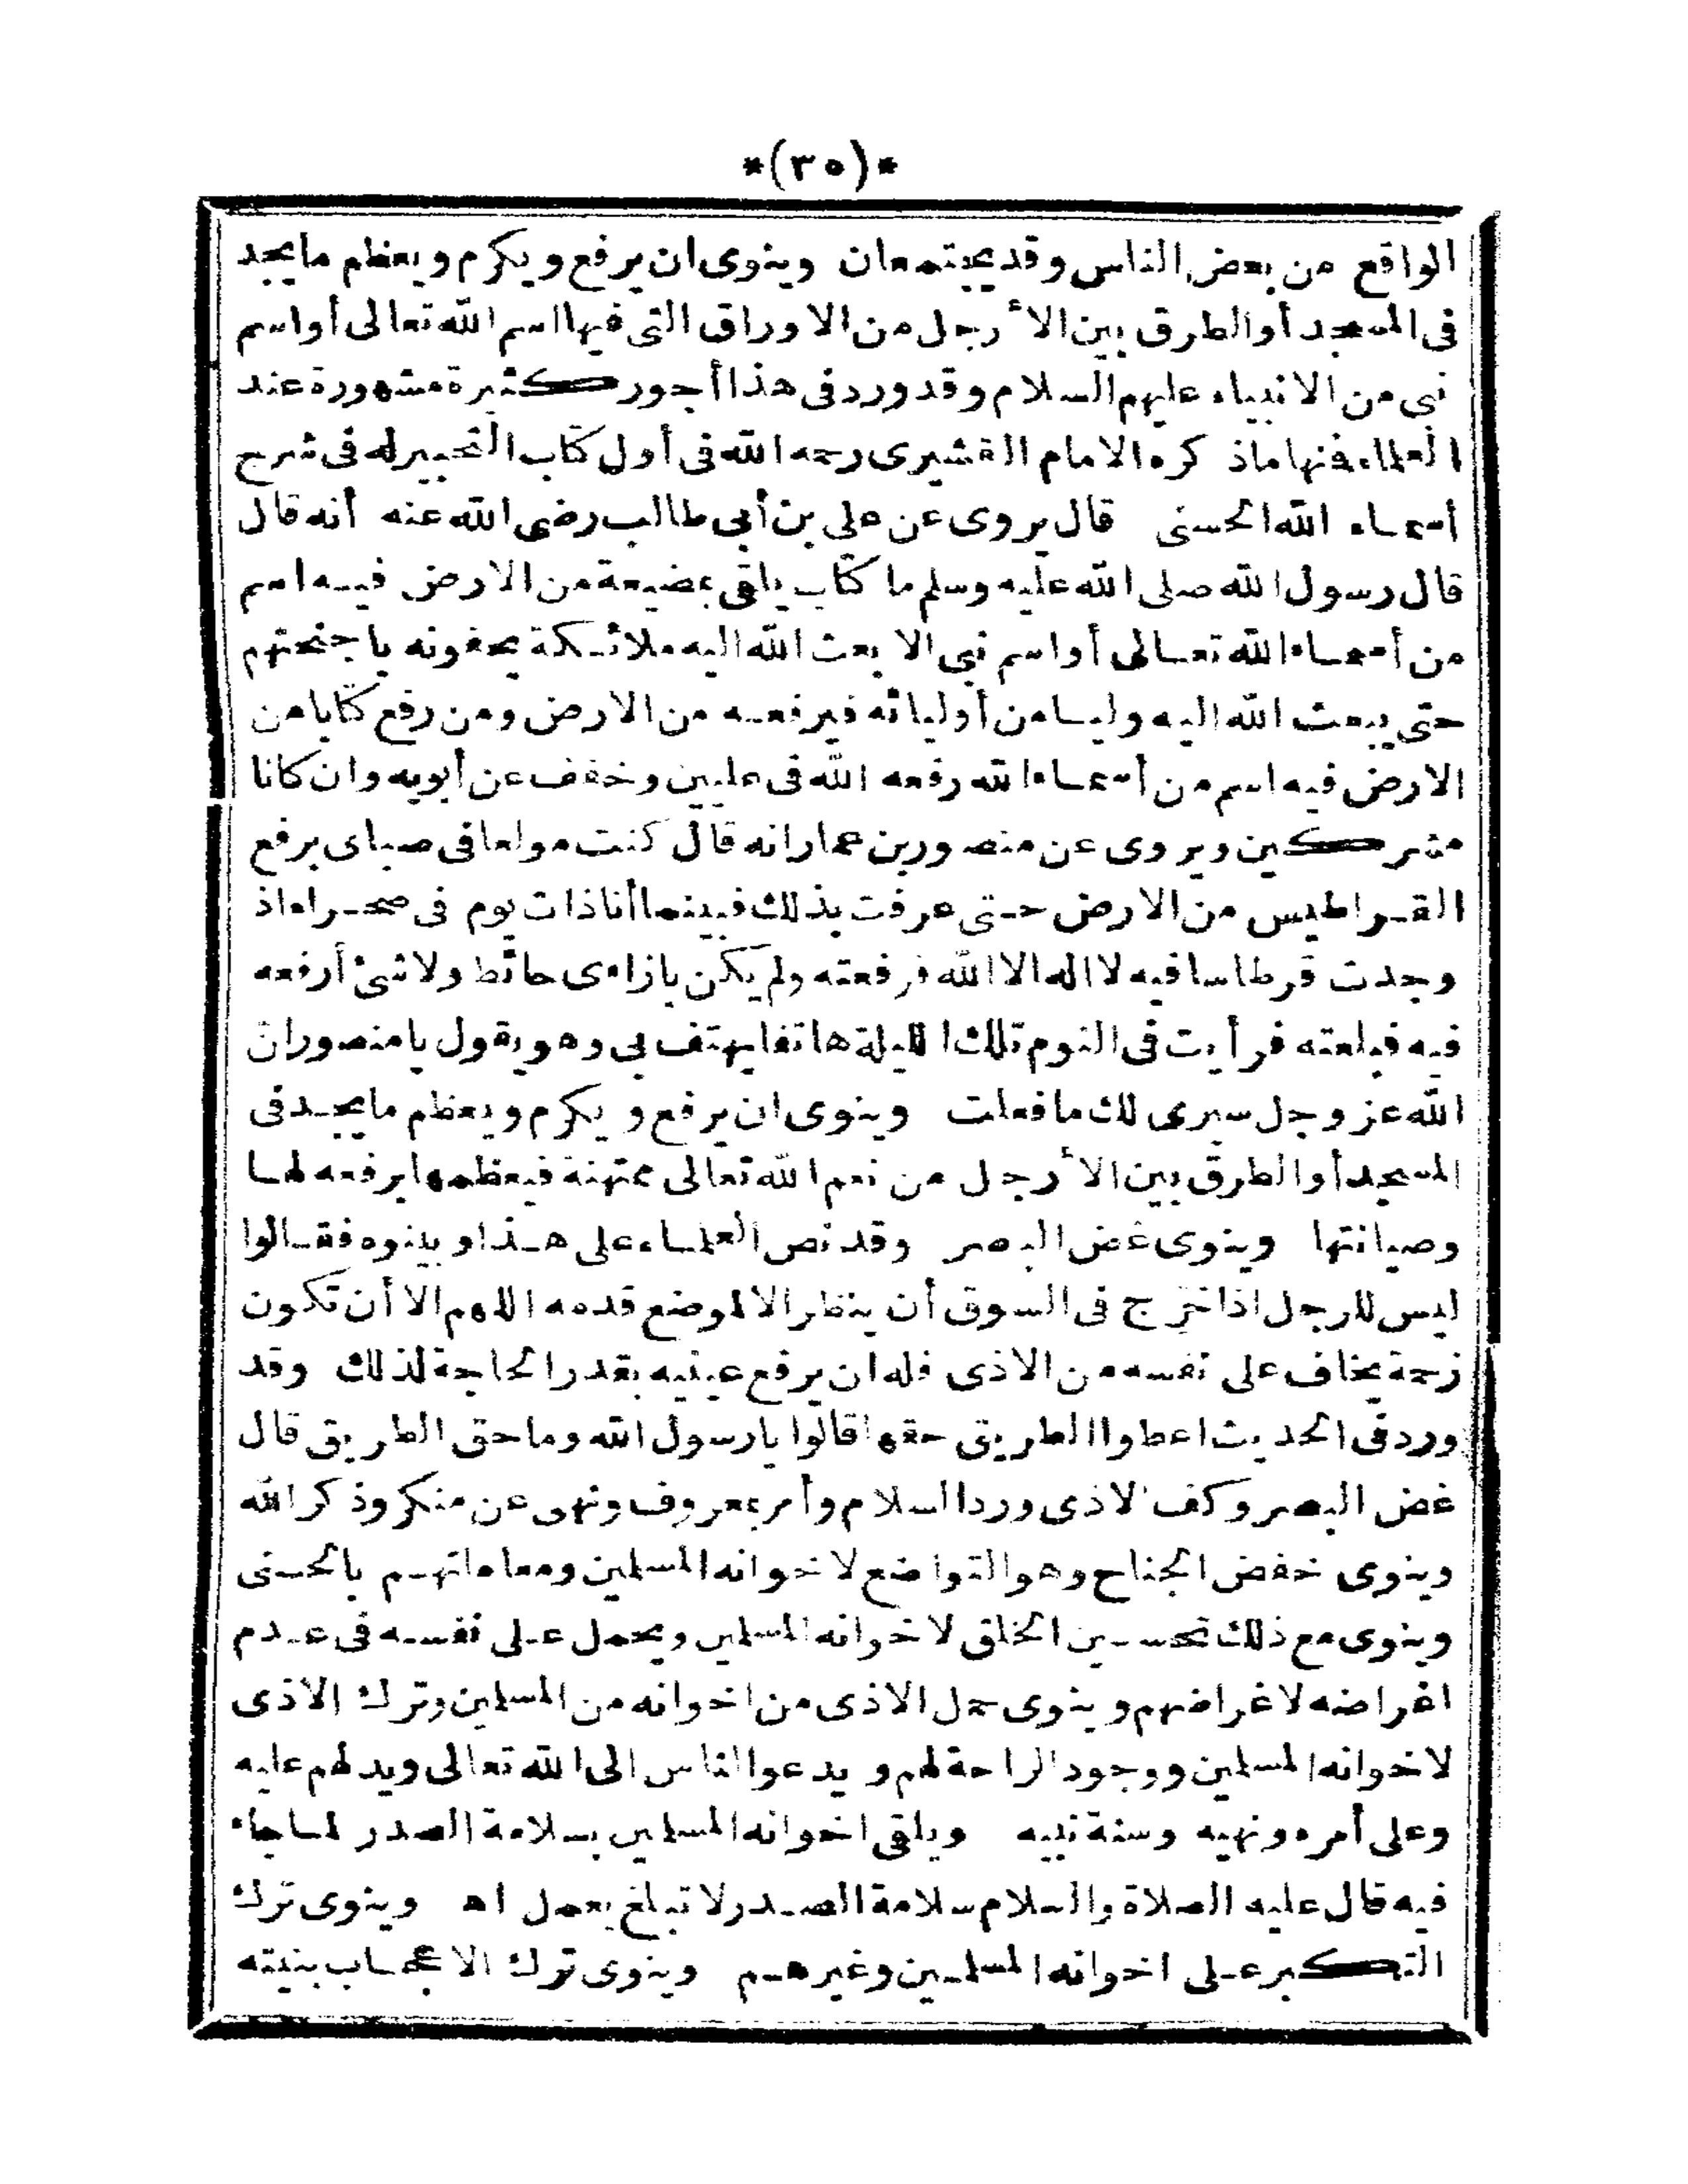 *(٣٥)*
الواقع من بعض الناس وقد يجتمعان وينوى ان يرفع ويكرم ويعظم ما يجد
فى المسجد أو الطرق بين الأرجل من الاوراق التى فيها اسم الله تعالى أو اسم
نبى من الانبياء عليهم السلام وقد ورد فى هذا أجور كثيرة مشهورة عند
العلماء فنها ماذكره الامام القشيرى رحمه الله فى أول كتاب التحبير له فى شرح
أسماء الله الحسنى قال يروى عن على بن أبى طالب رضى الله عنه أنه قال
قال رسول الله صلى الله عليه وسلم ما كتاب يلقى بمضيعة من الارض فيه اسم
من أسماء الله تعالى أو اسم نبى الا بعث الله اليه ملائكة يحفونه باجنحتهم
حتى يبعث الله اليه وليا من أوليائه فيرفعه من الارض ومن رفع كتابا من
الارض فيه اسم من أسماء الله رفعه الله فى عليين وخفف عن أبويه وان كانا
مشركين ويروى عن منصور بن عمار انه قال كنت مولعا فى صباى برفع
القراطيس من الارض حتى عرفت بذلك فبينما أنا ذات يوم فى صحراء اذ
وجدت قرطاسا فيه لا اله الا الله فرفعته ولم يكن بازاءى حائط ولا شئ أرفعه
فيه فبلعته فرأيت فى النوم تلك الليلة هاتفا يهتف بى وهو يقول يا منصور ان
الله عز وجل سيرى لك ما فعلت وينوى ان يرفع ويكرم ويعظم ما يجد فى
المسجد أو الطرق بين الأرجل من نعم الله تعالى ممتهنة فيعظمها برفعه لها
وصيانتها وينوى غض البصر وقد نص العلماء على هذا وبينوه فقالوا
ليس للرجل اذا خرج فى السوق أن ينظر الا لموضع قدمه اللهم الا أن تكون
زحمة يخاف على نفسه من الاذى فله ان يرفع عينيه بقدر الحاجة لذلك وقد
ورد فى الحديث اعطوا الطريق حقها قالوا يا رسول الله وما حق الطريق قال
غض البصر وكف الاذى ورد السلام وأمر بمعروف ونهى عن منكر وذكر الله
وينوى خفض الجناح وهو التواضع لاخوانه المسلمين ومعاملتهم بالحسنى
وينوى مع ذلك تحسين الخلق لاخوانه المسلمين ويحمل على نفسه فى عدم
اغراضه لاغراضهم وينوى حمل الاذى من اخوانه من المسلمين وترك الاذى
لاخوانه المسلمين ووجود الراحة لهم ويدعو الناس الى الله تعالى ويدلهم عليه
وعلى أمره ونهيه وسنة نبيه ويلقى اخوانه المسلمين بسلامة الصدر لما جاء
فيه قال عليه الصلاة والسلام سلامة الصدر لا تبلغ بعمل اه وينوى ترك
التكبر على اخوانه المسلمين وغيرهم وينوى ترك الاعجاب بنيته